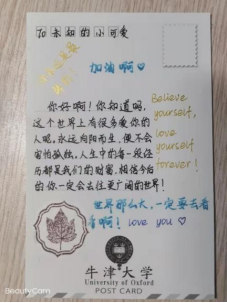 To 未知的小可爱
加油啊♡
你好啊！你知道吗，
这个世界上有很多爱你的
人呢，永远向阳而生，便不会
害怕孤独，人生中的每一段经
历都是我们的财富，相信今后
的你一定会去往更广阔的世界！
Believe
yourself,
love
yourself
forever!
世界那么大，一定要去看
看啊！love you ♡
牛津大学
University of Oxford
POST CARD
BeautyCam